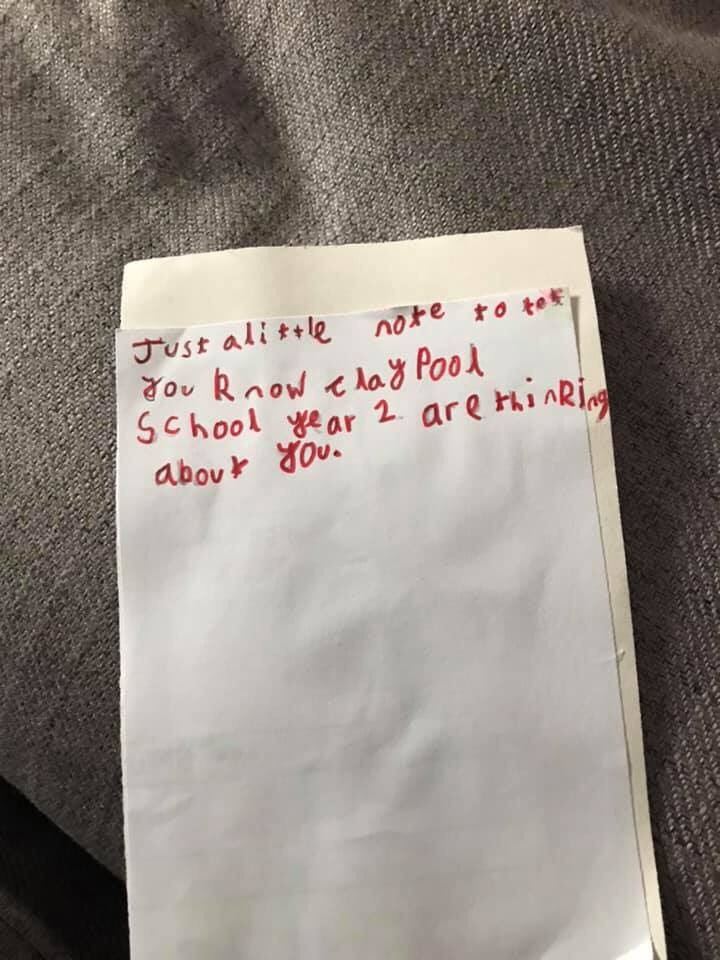 Just alittle note to let
you know claypool
School year 2 are thinking
about you.